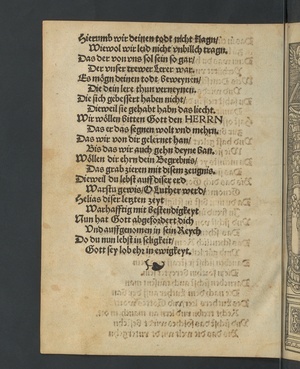 Hierumb wir deinen todt nicht klagn/
Wiewol wir leid nicht vnbillich tragn.
Das der von vns sol sein so gar/
Der vnser trewer Lerer war.
Es mögn deinen todt beweynen/
Die dein lere thun verneynen.
Die sich gebessert haben nicht/
Dieweil sie gehabt habn das liecht.
Wir wöllen bitten Gott den HERRN
Das er das segnen wolt vnd mehrn.
Das wir von dir gelernet han/
Bis das wir auch gehn deyne ban.
Wöllen dir ehrn dein Begrebnis/
Das grab zieren mit disem zeugnis.
Dieweil du lebst auff diser erd
Warstu gewis/ O Luther werd/
Helias diser letzten zeyt
Warhafftig mit bestendigkeyt
Nun hat Gott abgefordert dich
Vnd auffgenomen in sein Reych
Do du nun lebst in seligkeit/
Gott sey lob ehr in ewigkeyt.